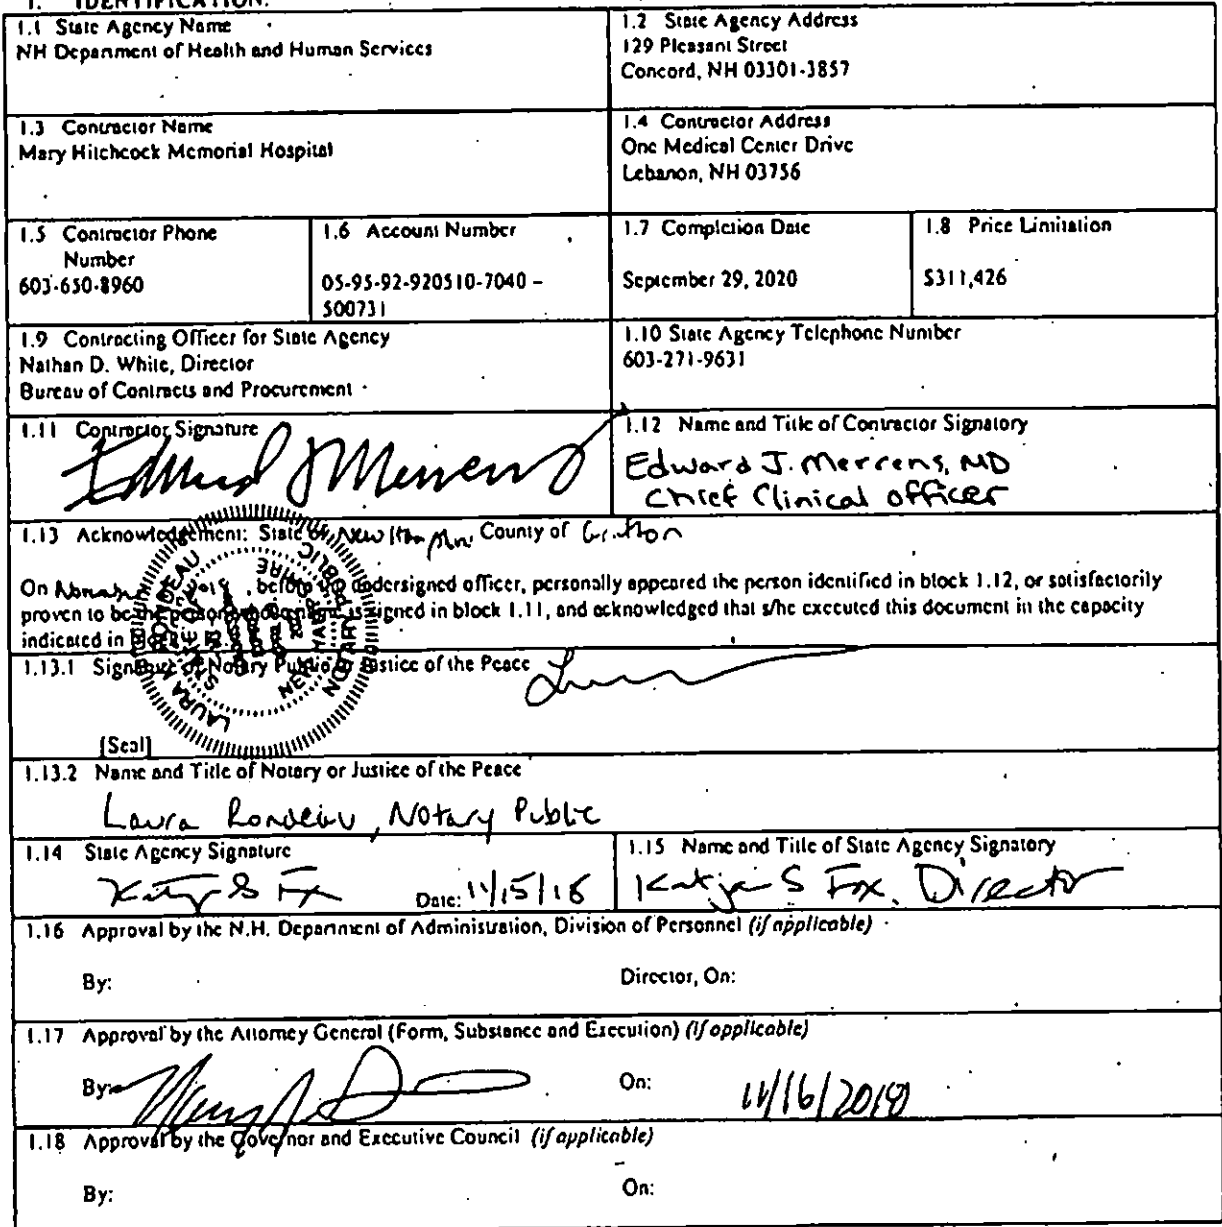 1. IDENTIFICATION.
1.1 State Agency Name
NH Department of Health and Human Services
1.2 State Agency Address
129 Pleasant Street
Concord, NH 03301-3857
1.3 Contractor Name
Mary Hitchcock Memorial Hospital
1.4 Contractor Address
One Medical Center Drive
Lebanon, NH 03756
1.5 Contractor Phone
Number
603-650-8960
1.6 Account Number
05-95-92-920510-7040 –
500731
1.7 Completion Date
September 29, 2020
1.8 Price Limitation
$311,426
1.9 Contracting Officer for State Agency
Nathan D. White, Director
Bureau of Contracts and Procurement
1.10 State Agency Telephone Number
603-271-9631
1.11 Contractor Signature
1.12 Name and Title of Contractor Signatory
Edward J. Merrens, MD
Chief Clinical Officer
1.13 Acknowledgement: State of New Hampshire County of Grafton
On , before undersigned officer, personally appeared the person identified in block 1.12, or satisfactorily
proven to be is signed in block 1.11, and acknowledged that s/he executed this document in the capacity
indicated in
1.13.1 Signature of Notary Public Justice of the Peace
LAURA RONDEAU
STATE OF
NEW HAMPSHIRE
NOTARY PUBLIC
[Seal]
1.13.2 Name and Title of Notary or Justice of the Peace
Laura Rondeau, Notary Public
1.14 State Agency Signature
Date: 11/15/18
1.15 Name and Title of State Agency Signatory
Katja S Fox, Director
1.16 Approval by the N.H. Department of Administration, Division of Personnel (if applicable)
By: Director, On:
1.17 Approval by the Attorney General (Form, Substance and Execution) (if applicable)
By: On: 11/16/2018
1.18 Approval by the Governor and Executive Council (if applicable)
By: On: